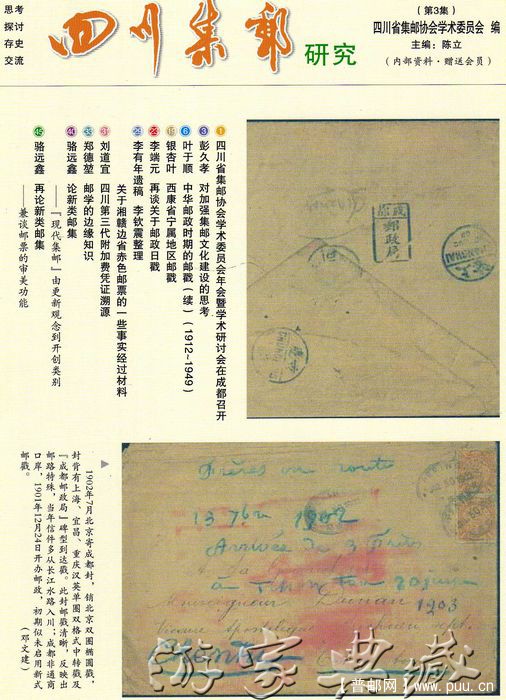 思考
探讨
存史
交流
四川集邮
研究
(第3集)
四川省集邮协会学术委员会 编
主编:陈立
(内部资料·赠送会员)
1 四川省集邮协会学术委员会年会暨学术研讨会在成都召开
3 彭久孝 对加强集邮文化建设的思考
6 叶于顺 中华邮政时期的邮戳(续)(1912~1949)
15 银杏叶 西康省宁属地区邮戳
23 李端元 再谈关于邮政日戳
29 李有年遗稿 李钦震整理
关于湘赣边省赤色邮票的一些事实经过材料
31 刘道宜 四川第三代附加费凭证溯源
35 郑德堃 邮学的边缘知识
40 骆远鑫 论新类邮集
——『现代集邮』由更新观念到开创类别
45 骆远鑫 再论新类邮集
——兼谈邮票的审美功能
成都
郵政局
1902年7月北京寄成都封,销北京双圈椭圆戳,
封背有上海、宜昌、重庆汉英单圈双格式中转戳及
『成都邮政局』碑型到达戳。此封邮戳清晰,反映出
邮路特殊,当年信件多从长江水路入川;成都非通商
口岸,1901年12月24日开办邮政,初期似未启用新式
邮戳。
(邓文建)
Frères en route
13 7bre 1902
Arrivée de 3 Frères
1903
游家典藏
[普邮网] www.puu.cn